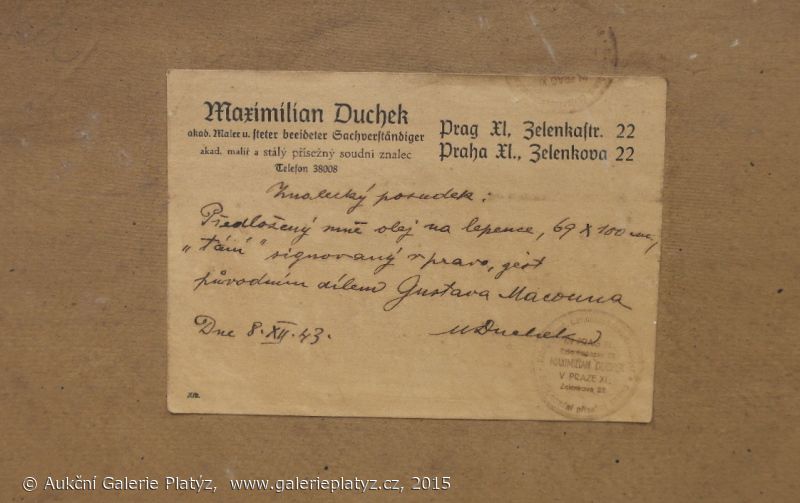 Maximilian Duchek
akad. Maler u. steter beeideter Sachverständiger
akad. malíř a stálý přísežný soudní znalec
Telefon 38008
Prag XI, Zelenkastr. 22
Praha XI., Zelenkova 22
Znalecký posudek:
Předložený mně olej na lepence, 69 X 100 cm,
„Tání" signovaný vpravo, jest
původním dílem Gustava Macouna
Dne 8. XII. 43. M Duchek
MAXIMILIAN DUCHEK
V PRAZE XI.
Zelenkova 22
© Aukční Galerie Platýz, www.galerieplatyz.cz, 2015